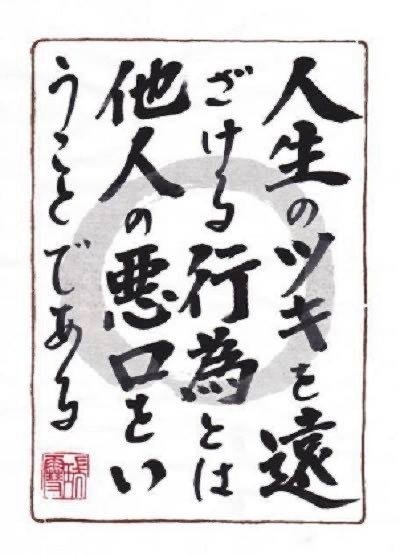 人生のツキを遠
ざける行為とは
他人の悪口をい
うことである